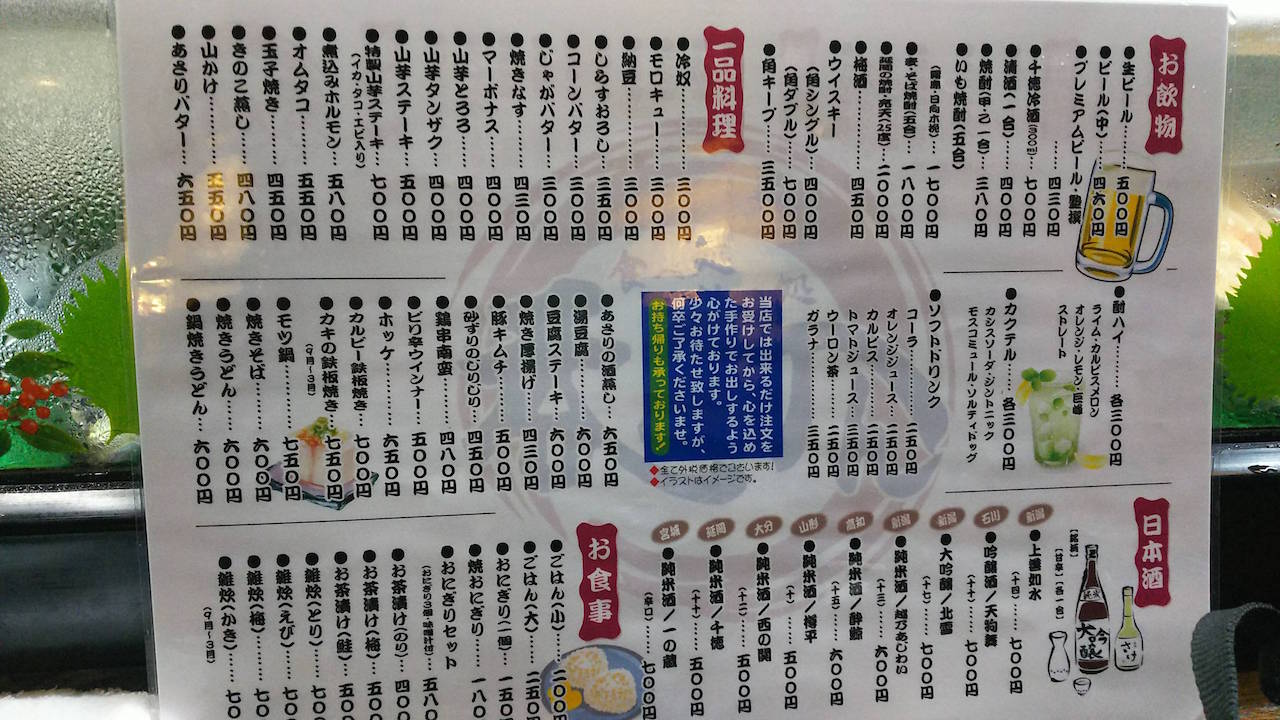 お飲物
●生ビール……五〇〇円
●ビール(中)…四六〇円
●プレミアムビール・
……四三〇円
●千徳冷酒(300㎖)…七〇〇円
●清酒(一合)…四〇〇円
●焼酎(甲・乙一合)…三八〇円
●いも焼酎(五合)
一七〇〇円
●麦・そば焼酎(五合)…一八〇〇円
二〇〇〇円
●梅酒……四五〇円
●ウイスキー
(角シングル)…四〇〇円
(角ダブル)…七〇〇円
●角キープ…三五〇〇円
一品料理
●冷奴……三〇〇円
●モロキュー…三〇〇円
●納豆……三〇〇円
●しらすおろし…三五〇円
●コーンバター…三〇〇円
●じゃがバター…三〇〇円
●焼きなす……四三〇円
●マーボナス…四〇〇円
●山芋とろろ…四〇〇円
●山芋タンザク…四〇〇円
●山芋ステーキ…五〇〇円
●特製山芋ステーキ…七〇〇円
(イカ・タコ・エビ入り)
●煮込みホルモン…五八〇円
●オムタコ……五五〇円
●玉子焼き……五五〇円
●きのこ蒸し…四八〇円
●山かけ……五五〇円
●あさりバター…六五〇円
●酎ハイ……各三〇〇円
ライム・カルピス・メロン
オレンジ・レモン・巨峰
ストレート
●カクテル…各三〇〇円
カシスソーダ・ジントニック
モスコミュール・ソルティドッグ
●ソフトドリンク
コーラ……二五〇円
オレンジジュース…二五〇円
カルピス……二五〇円
トマトジュース…二五〇円
ウーロン茶……二五〇円
ガラナ……三五〇円
当店では出来るだけ注文を
お受けしてから、心を込め
た手作りでお出しするよう
心がけております。
少々お待たせ致しますが、
何卒ご了承くださいませ。
お持ち帰りも承っております!
◆全て外税価格でございます!
◆イラストはイメージです。
●あさりの酒蒸し…六五〇円
●湯豆腐……六〇〇円
●豆腐ステーキ…六〇〇円
●焼き厚揚げ…四三〇円
●豚キムチ…五〇〇円
●砂ずりのじりじり…四五〇円
●鶏串南蛮…四八〇円
●ピリ辛ウインナー…五〇〇円
●ホッケ……六五〇円
●カルビー鉄板焼き…七〇〇円
●カキの鉄板焼き…七五〇円
(9月〜3月)
●モツ鍋……七五〇円
●焼きそば……六〇〇円
●焼きうどん…六〇〇円
●鍋焼きうどん…六〇〇円
日本酒
【銘柄】
【甘辛】【各一合】
新潟
●上善如水
(十四)…七〇〇円
石川
●吟醸酒/天狗舞
七〇〇円
新潟
●大吟醸/北雪
(十七)…七〇〇円
新潟
●純米酒/越乃あじわい
(十三)…六〇〇円
高知
●純米酒/酔鯨
(十五)…六〇〇円
山形
●純米酒/樽平
(十)…五〇〇円
大分
●純米酒/西の関
(十二)…五〇〇円
延岡
●純米酒/千徳
(十十)…五〇〇円
宮城
●純米酒/一の蔵
(辛口)…七〇〇円
純米
大吟醸
さけ
お食事
●ごはん(小)…二〇〇円
●ごはん(大)…二五〇
●おにぎり(二個)…一五〇
●焼おにぎり……一八〇
●おにぎりセット
(おにぎり3個・味噌汁付)…五八〇
●お茶漬け(のり)…四〇〇
●お茶漬け(梅)…五〇〇
●お茶漬け(鮭)…五〇〇
●雑炊(とり)…七〇
●雑炊(えび)…七〇
●雑炊(梅)…七〇
●雑炊(かき)…七〇
(9月〜3月)